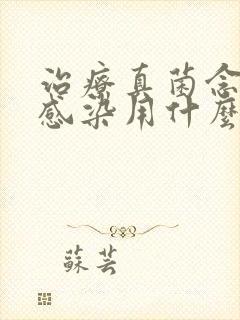 治療真菌念
感染用什麼
蘇芸